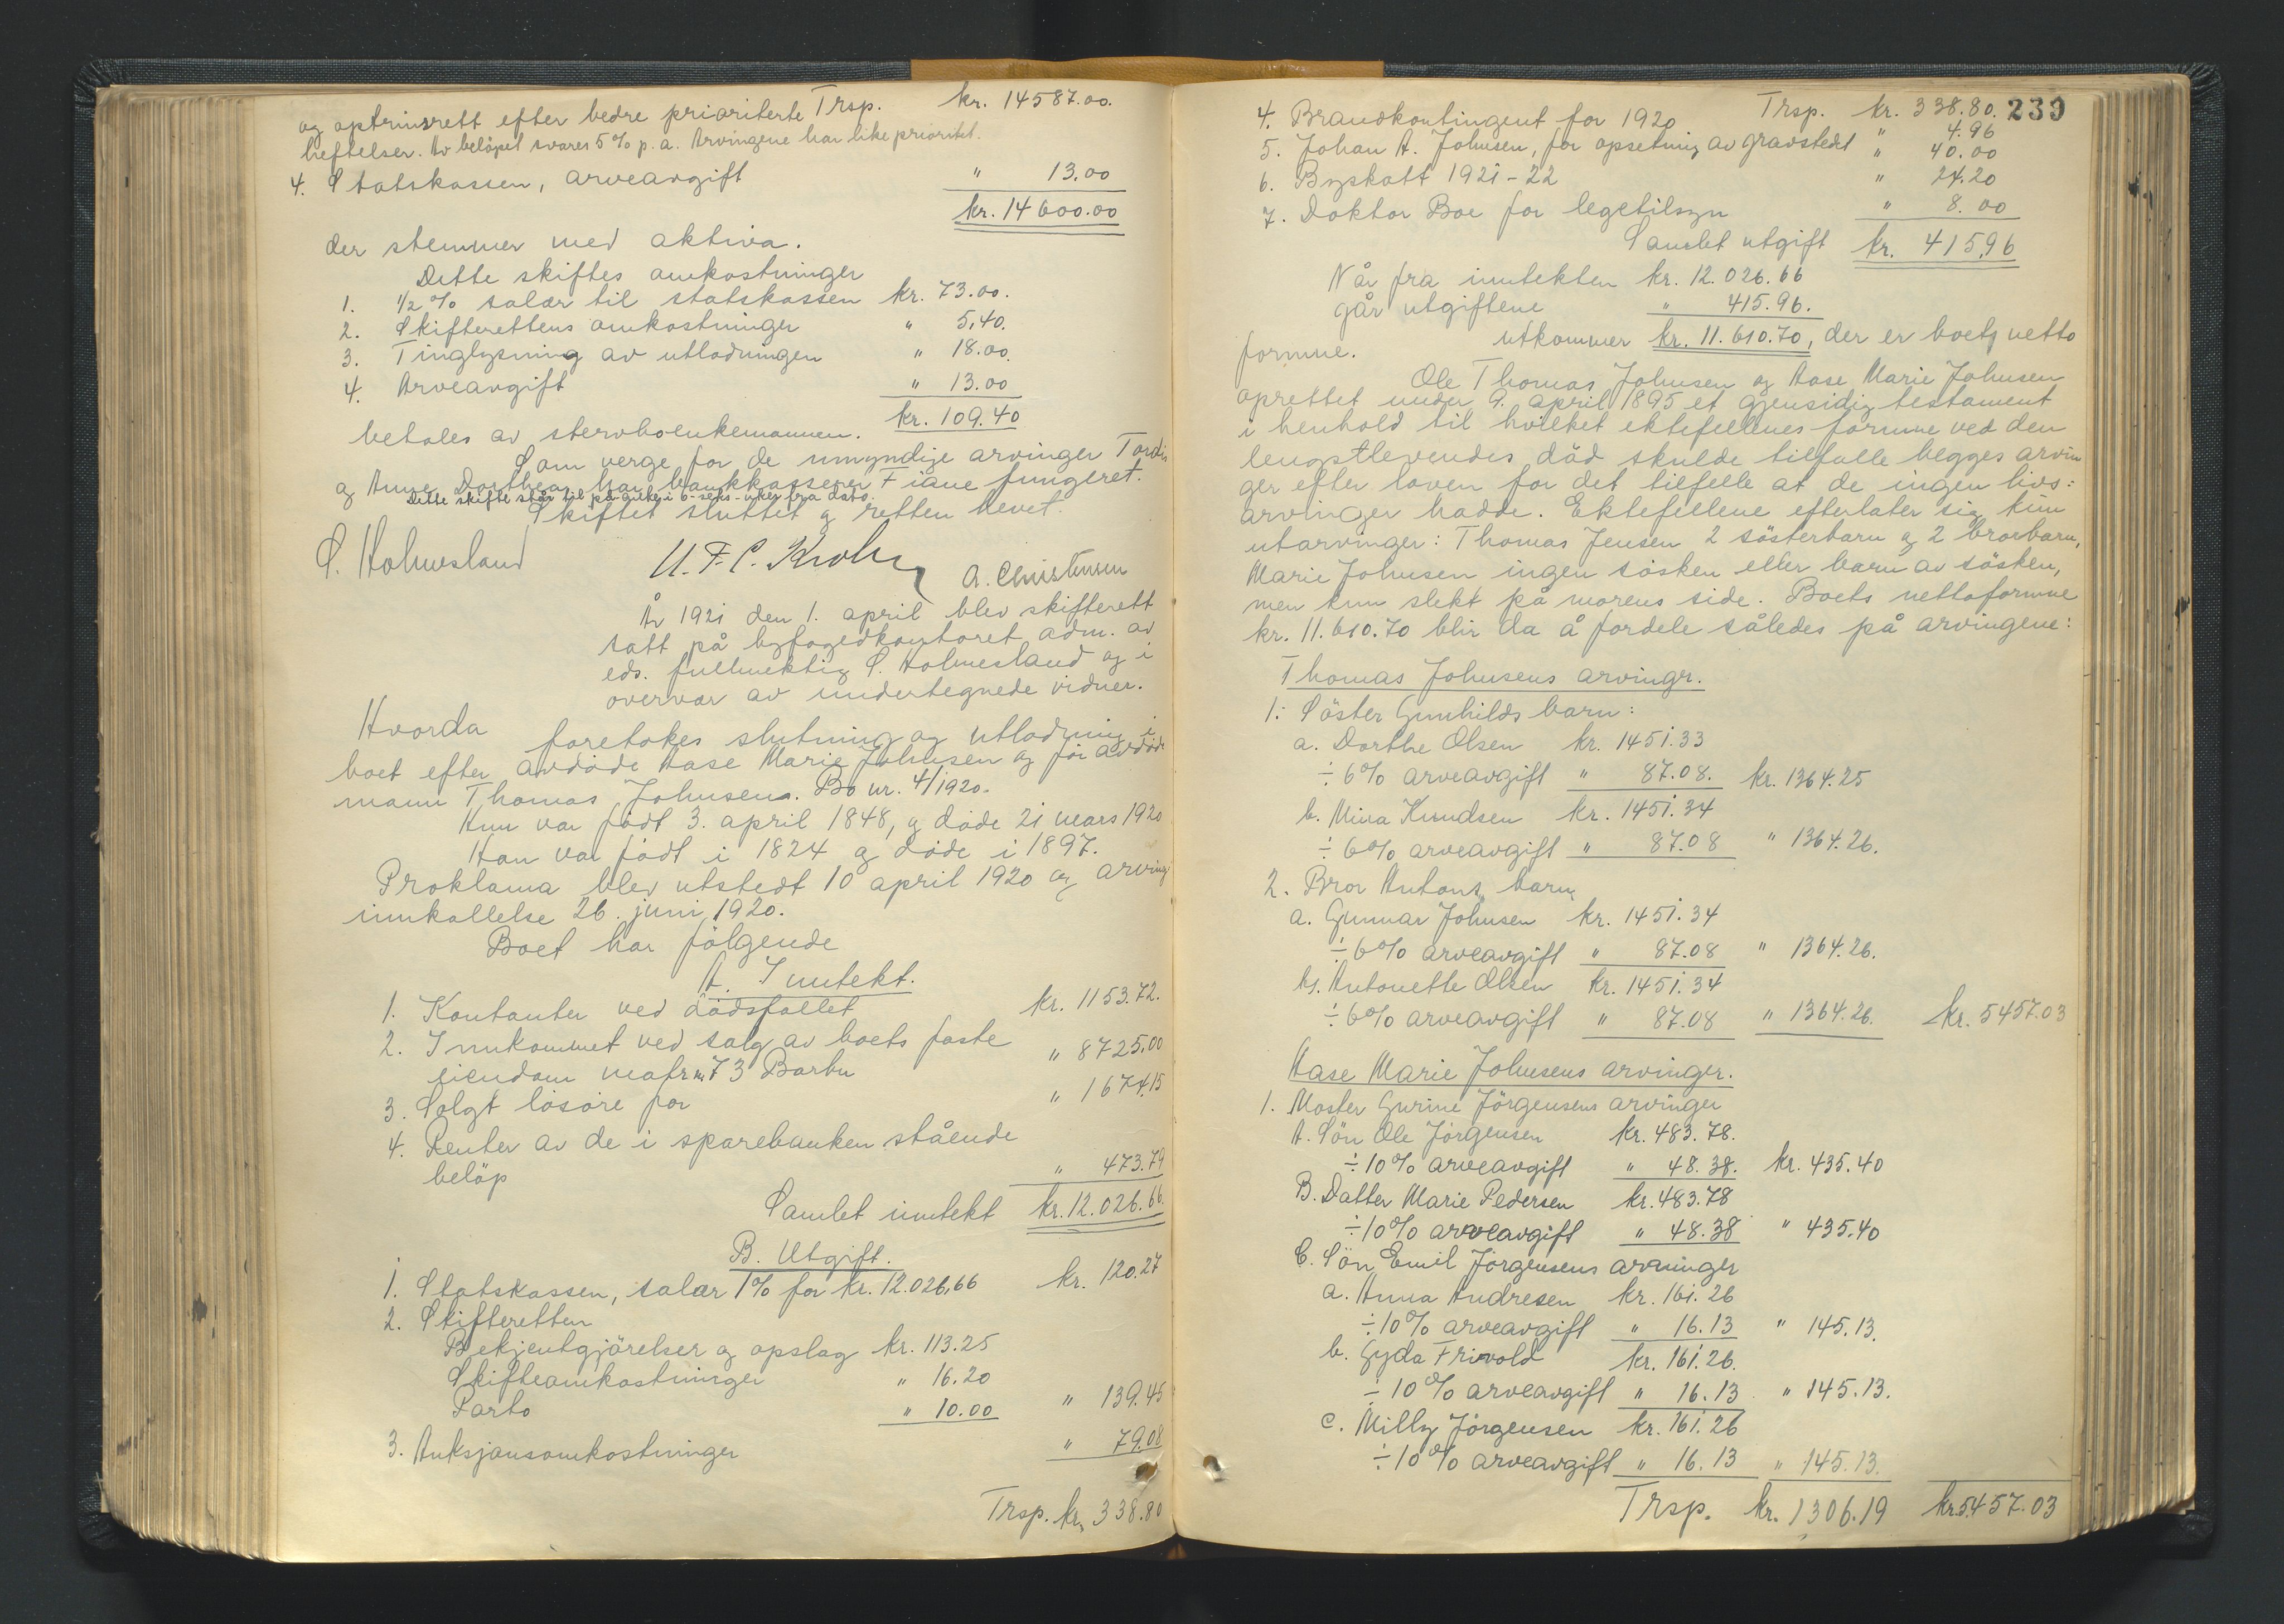 Trsp. kr. 14587.00.
og optrinsrett efter bedre prioriterte
heftelser. Av beløpet svares 5% p. a. Arvingene har like prioritet.
4. Statskassen, arveavgift " 13.00
kr. 14600.00
der stemmer med aktiva.
Dette skiftes omkostninger
1. 1/2 % salær til statskassen kr. 73.00.
2. Skifterettens omkostninger " 5,40.
3. Tinglysning av utlodningen " 18.00.
4. Arveavgift " 13.00
kr. 109.40
betales av stervboenkemannen.
Som verge for de umyndige arvinger
og Anne Dorthea har bankkasserer Fiane fungeret.
Dette skifte står til påanke i 6 - seks - uker fra dato.
Skiftet sluttet og retten hevet.
S. Holmesland U. F. C. Krohn A. Christensen
År 1921 den 1. april blev skifterett
satt på byfogedkontoret adm. av
eds. fullmektig S. Holmesland og i
overvær av undertegnede vidner.
Hvorda foretokes slutning og utlodning i
boet efter avdøde Aase Marie Johnsen og før avdøde
mann Thomas Johnsen. Bo nr. 4/1920.
Hun var født 3. april 1848, og døde 21 mars 1920
Han var født i 1824 og døde i 1897.
Proklama blev utstedt 10 april 1920 og arving
innkallelse 26. juni 1920.
Boet har følgende
A. Inntekt.
1. Kontanter ved dødsfallet kr. 1153.72.
2. Innkommet ved salg av boets faste
eiendom matr nr 73 Barbu " 8725,00
3. Solgt løsøre for " 1674,15
4. Renter av de i sparebanken stående
beløp " 473.79
Samlet inntekt kr. 12.026.66.
B. Utgift.
1. Statskassen, salær 1% for kr. 12.026,66 kr. 120.27
2. Skifteretten
Bekjentgjørelser og opslag kr. 113.25
Skifteomkostninger " 16.20
Porto " 10.00 " 139.45
3. Auksjonsomkostninger " 79.08
Trsp. kr. 338.80
Trsp. kr. 338.80. 239
4. Brandkontingent for 1920 " 4.96
5. Johan A. Johnsen, for opsetning av gravstedet " 40.00
6. Byskatt 1921-22 " 24.20
7. Doktor Boe for legetilsyn " 8.00
Samlet utgift kr. 415,96
Når fra inntekten kr. 12.026.66
går utgiftene " 415.96.
utkommer kr. 11.610.70, der er boets netto
formue.
Ole Thomas Johnsen og Aase Marie Johnsen
oprettet under 9. april 1895 et gjensidig testament
i henhold til hvilket ektefellenes formue ved den
lengstlevendes død skulde tilfalle begges arvin
ger efter loven for det tilfelle at de ingen livs:
arvinger hadde. Ektefellene efterlater sig kun
utarvinger: Thomas Jensen 2 søsterbarn og 2 brorbarn,
Marie Johnsen ingen søsken eller barn av søsken,
men kun slekt på morens side. Boets nettoformue
kr. 11.610.70 blir da å fordele således på arvingene:
Thomas Johnsens arvingr.
1: Søster Gunhilds barn:
a. Dorthe Olsen kr. 1451.33
÷ 6% arveavgift " 87.08. kr. 1364.25
b. Mina Knudsen kr. 1451.34
÷ 6% arveavgift " 87.08 " 1364.26.
2. Bror Antons barn
a. Gunnar Johnsen kr. 1451.34
÷ 6% arveavgift " 87.08 " 1364.26.
b. Antonette Olsen kr. 1451.34
÷ 6% arveavgift " 87.08 " 1364.26. kr. 5457.03
Aase Marie Johnsens arvinger.
1. Moster Gurine Jørgensens arvinger
A. Søn Ole Jørgensen kr. 483.78.
÷ 10% arveavgift " 48.38. kr. 435.40
B. Datter Marie Pedersen kr. 483.78
÷ 10% arveavgift " 48.38 " 435.40
C. Søn Emil Jørgensens arvinger
a. Anna Andresen kr. 161.26
÷ 10% arveavgift " 16.13 " 145.13.
b. Gyda Frivold kr. 161.26.
÷ 10% arveavgift " 16.13 " 145.13.
c. Milly Jørgensen kr. 161.26
÷ 10% arveavgift " 16.13 " 145.13.
Trsp. kr. 1306.19 kr. 5457.03